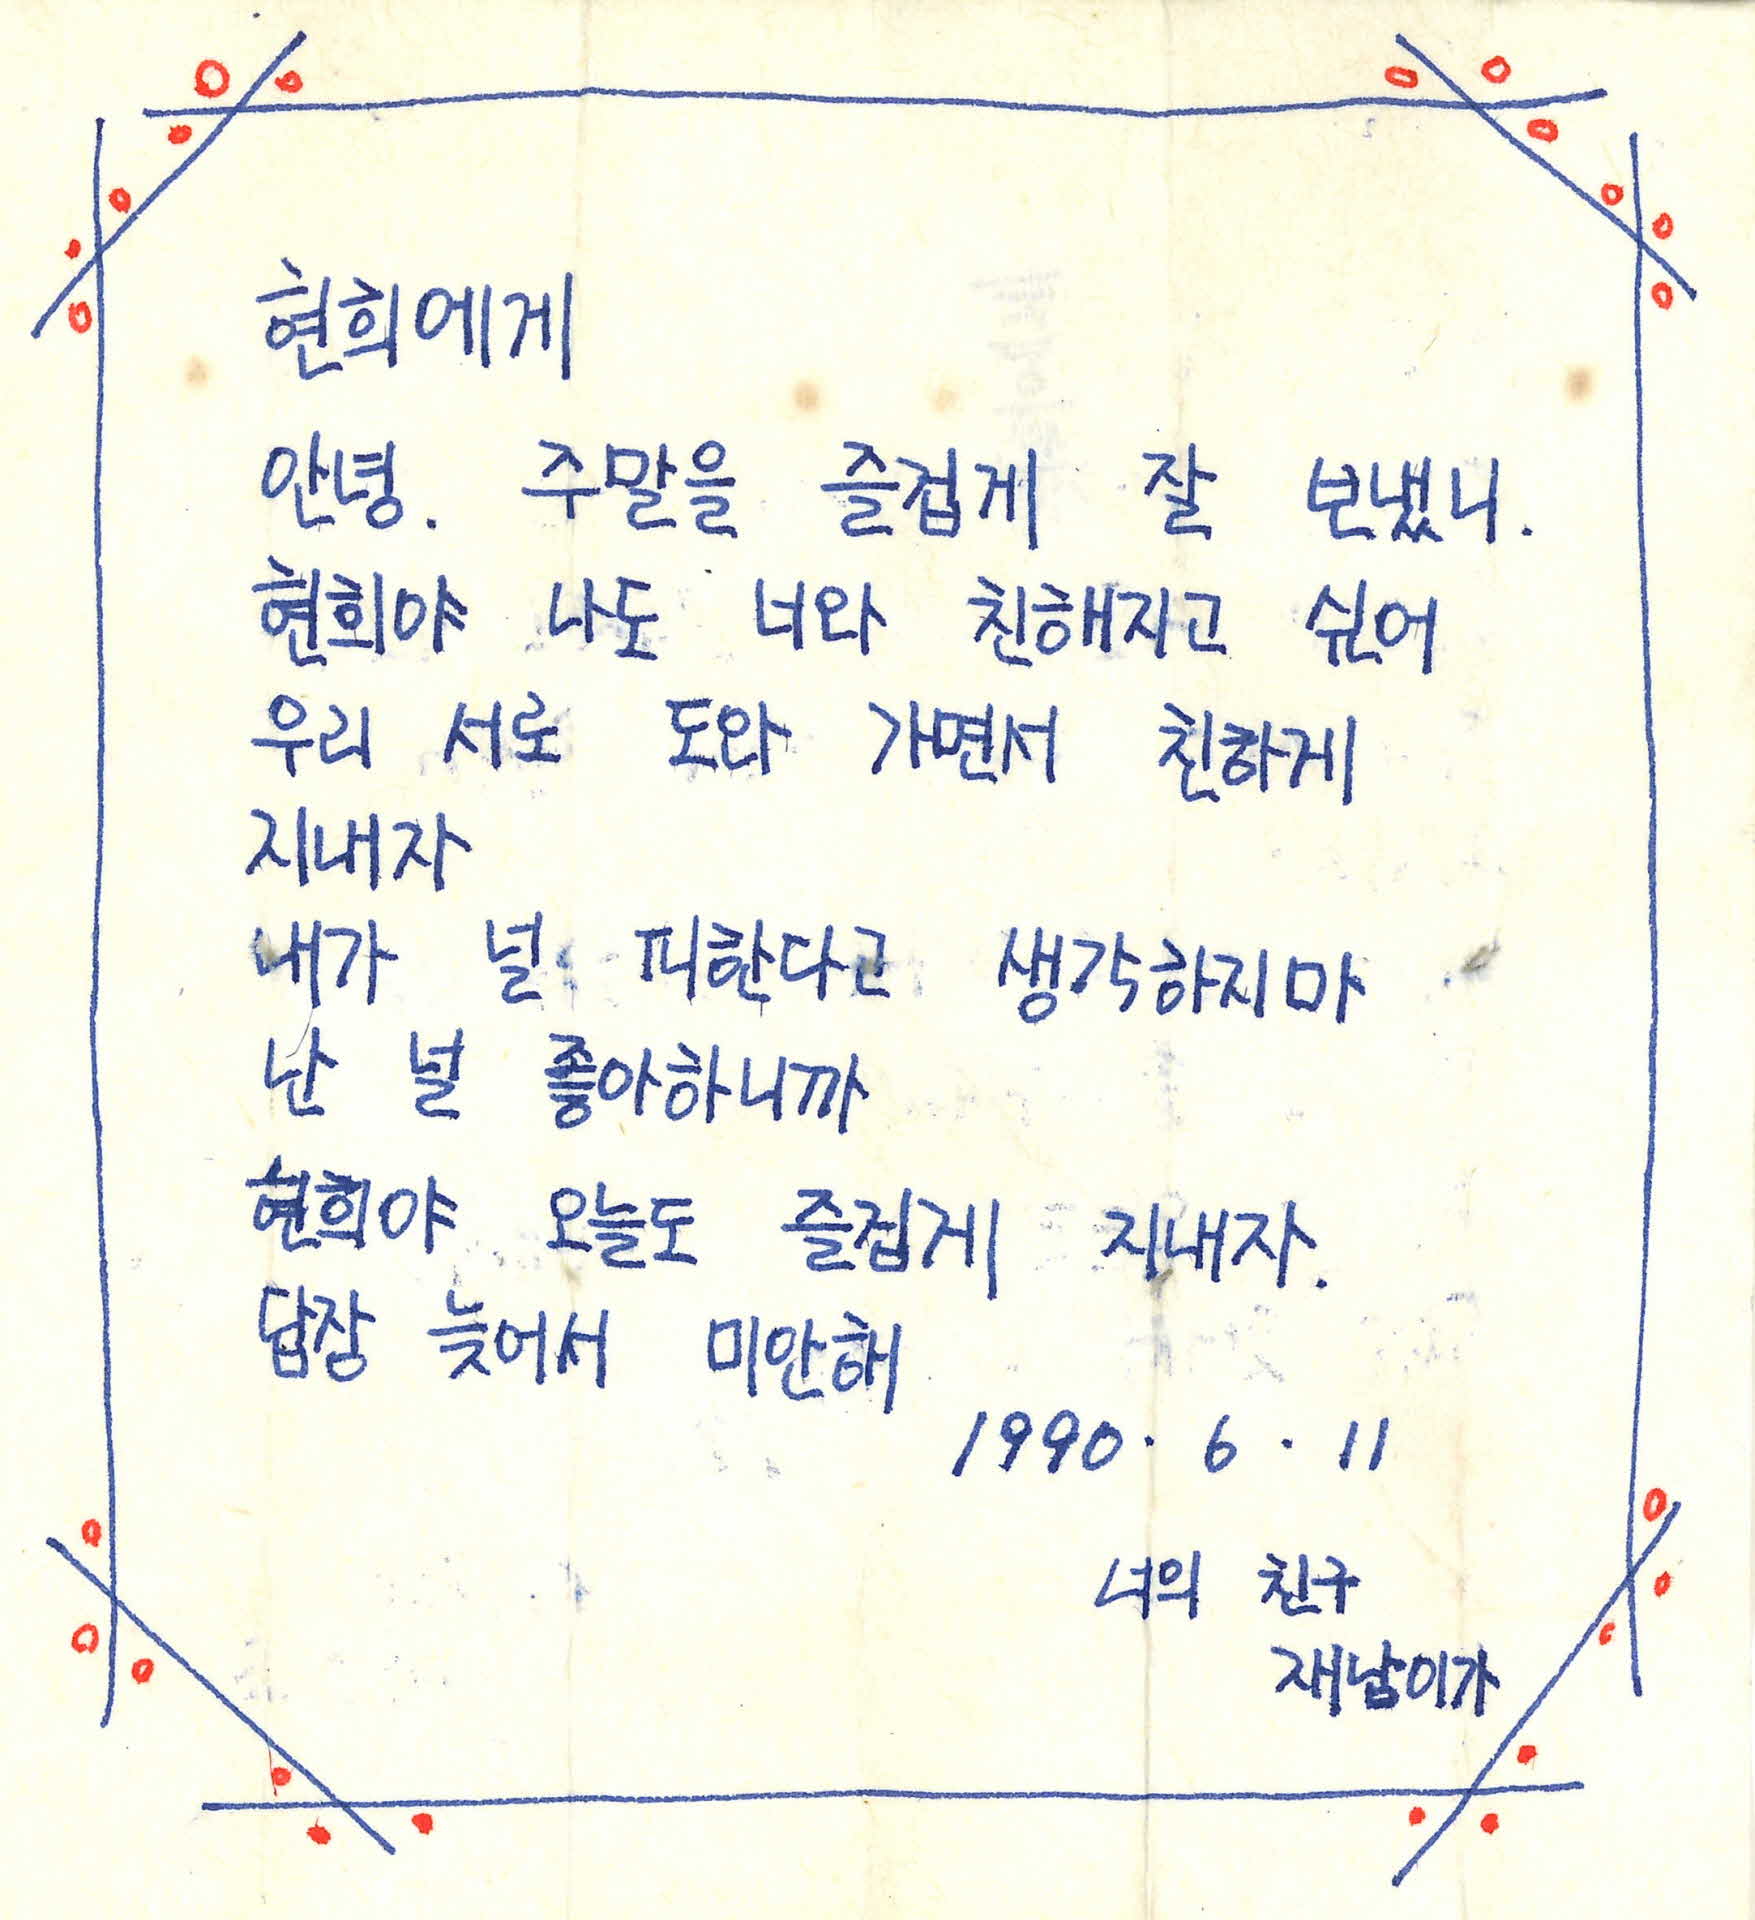 현희에게
안녕. 주말을 즐겁게 잘 보냈니.
현희야 나도 너와 친해지고 싶어
우리 서로 도와 가면서 친하게
지내자
내가 널 피한다고 생각하지마
난 널 좋아하니까
현희야 오늘도 즐겁게 지내자.
답장 늦어서 미안해
1990. 6. 11
너의 친구
재남이가